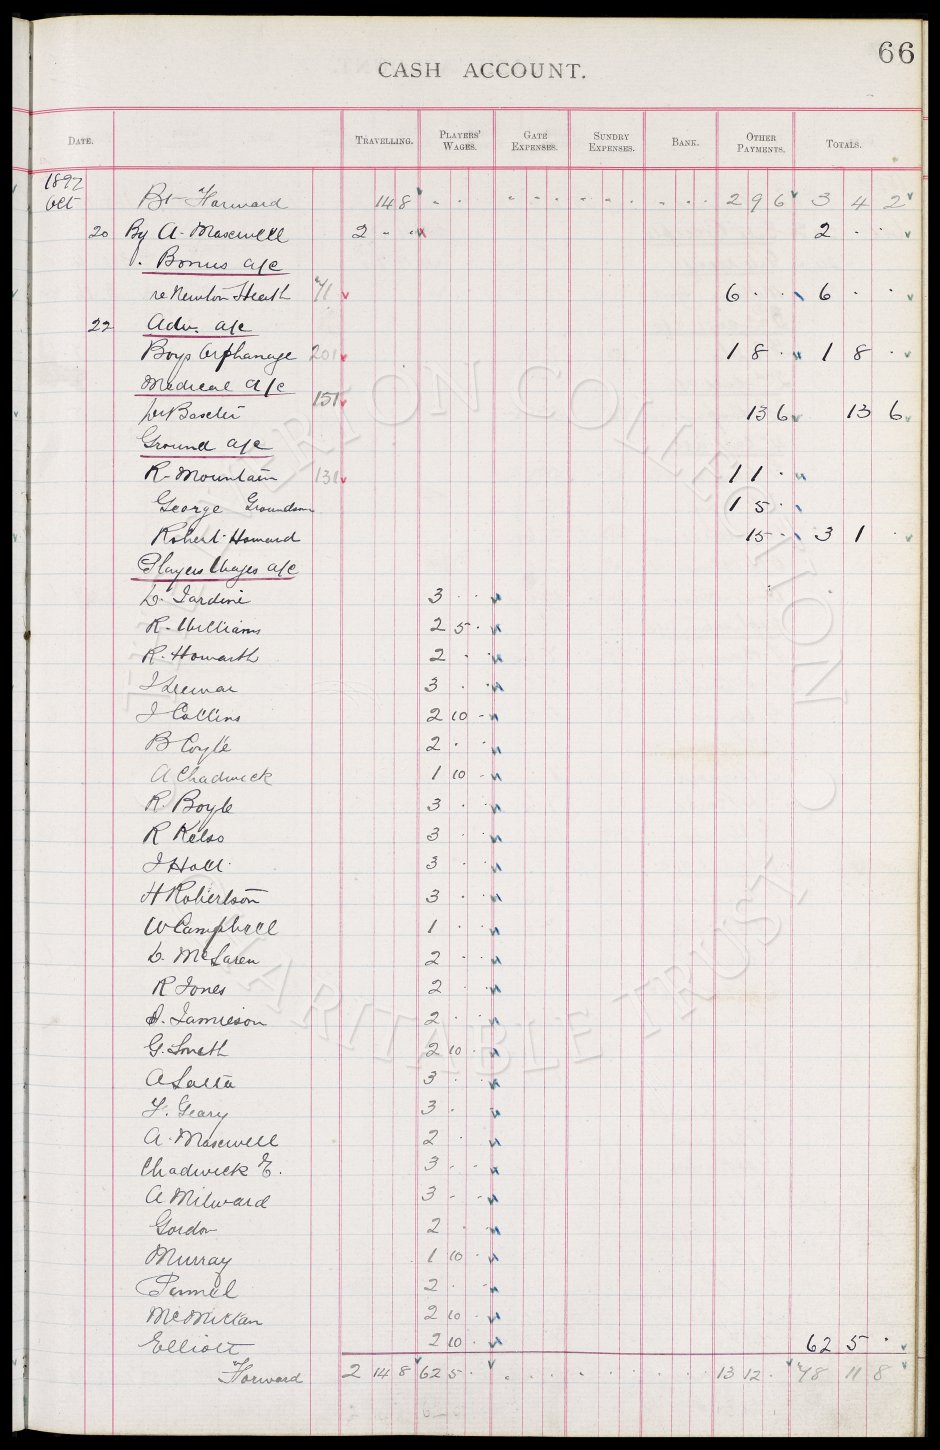 66
CASH ACCOUNT.
DATE. TRAVELLING. PLAYERS' WAGES. GATE EXPENSES. SUNDRY EXPENSES. BANK. OTHER PAYMENTS. TOTALS.
1892
Oct Bt Forward 14 8 - - - - - - - - - - - 2 9 6 3 4 2
20 By A. Maxwell 2 - - 2 - -
. Bonus a/c
re Newton Heath 71 6 - - 6 - -
22 Adv. a/c
Boys Orphanage 201 1 8 - 1 8 -
Medical a/c
Dr Baxter 151 13 6 13 6
Ground a/c
R. Mountain 131 1 1 -
George Groundsman 1 5 -
Robert Howard 15 - 3 1 -
Players Wages a/c
D. Jardine 3 - -
R. Williams 2 5 -
R. Howarth 2 - -
3 - -
J Collins 2 10 -
B Coyle 2 - -
A Chadwick 1 10 -
R. Boyle 3 - -
R Kelso 3 - -
J Holt 3 - -
H Robertson 3 - -
W Campbell 1 - -
D. McLaren 2 - -
R Jones 2 - -
J. Jamieson 2 - -
G. Smith 2 10 -
A Latta 3 - -
F. Geary 3 -
A. Maxwell 2 -
Chadwick E. 3 - -
A Milward 3 - -
Gordon 2 - -
Murray 1 10 -
2 - -
McMillan 2 10 -
Elliott 2 10 - 62 5 -
Forward 2 14 8 62 5 - - - - - - - - - 13 12 - 78 11 8
THE EVERTON COLLECTION
CHARITABLE TRUST